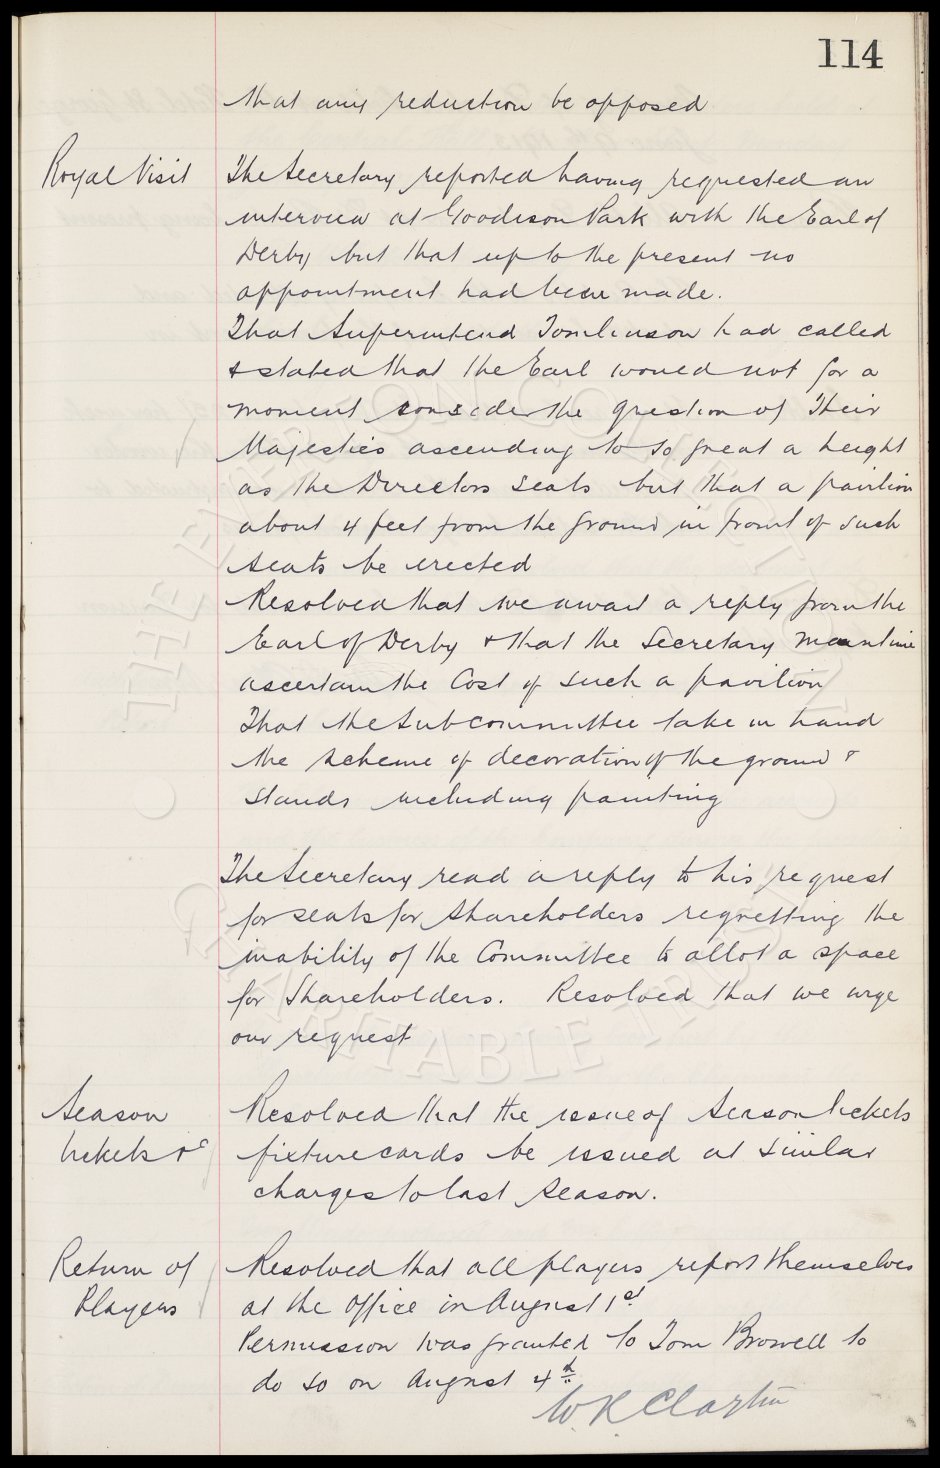 114
that any reduction be opposed
Royal Visit
The Secretary reported having requested an
interview at Goodison Park with the Earl of
Derby but that up to the present no
appointment had been made.
That Superintend Tomlinson had called
& stated that the Earl would not for a
moment consider the question of Their
Majesties ascending to so great a height
as the Directors seats but that a pavilion
about 4 feet from the ground in front of such
seats be erected
Resolved that we await a reply from the
Earl of Derby & that the Secretary meantime
ascertain the Cost of such a pavilion
That the Subcommittee take in hand
the scheme of decoration of the ground &
stands including painting
The Secretary read a reply to his request
for seats for Shareholders regretting the
inability of the Committee to allot a space
for Shareholders. Resolved that we urge
our request
Season
tickets &c
Resolved that the issue of Season tickets
fixture cards be issued at similar
charges to last season.
Return of
Players
Resolved that all players report themselves
at the office on August 1st
Permission was granted to Tom Browell to
do so on August 4th
W R Clayton
THE EVERTON COLLECTION
CHARITABLE TRUST